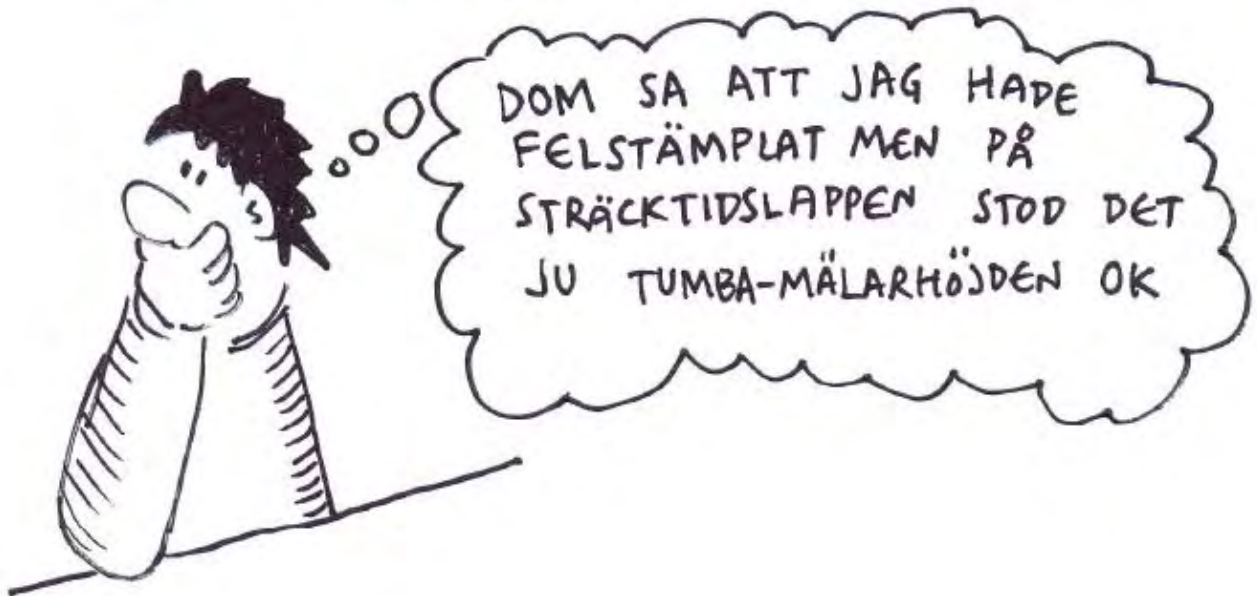 DOM SA ATT JAG HADE
FELSTÄMPLAT MEN PÅ
STRÄCKTIDSLAPPEN STOD DET
JU TUMBA-MÄLARHÖJDEN OK